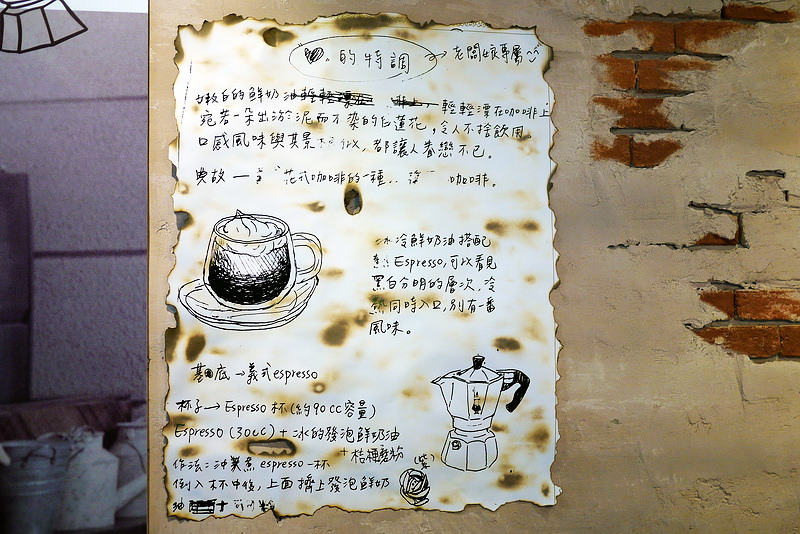 的特調 → 老闆娘專屬
嫩白的鮮奶油 輕輕漂在咖啡上
宛若一朵出淤泥而不染的白蓮花,令人不捨飲用
口感風味與其景 都讓人眷戀不已。
典故 一 花式咖啡的一種 咖啡。
冰冷鮮奶油搭配
Espresso,可以看見
黑白分明的層次,冷
熱同時入口,別有一番
風味。
基底→義式espresso
杯子→Espresso杯(約90cc容量)
Espresso (30cc)+冰的發泡鮮奶油
+桔梗磨粉
(紫)
作法:沖煮 espresso一杯
倒入杯中後,上面擠上發泡鮮奶
油